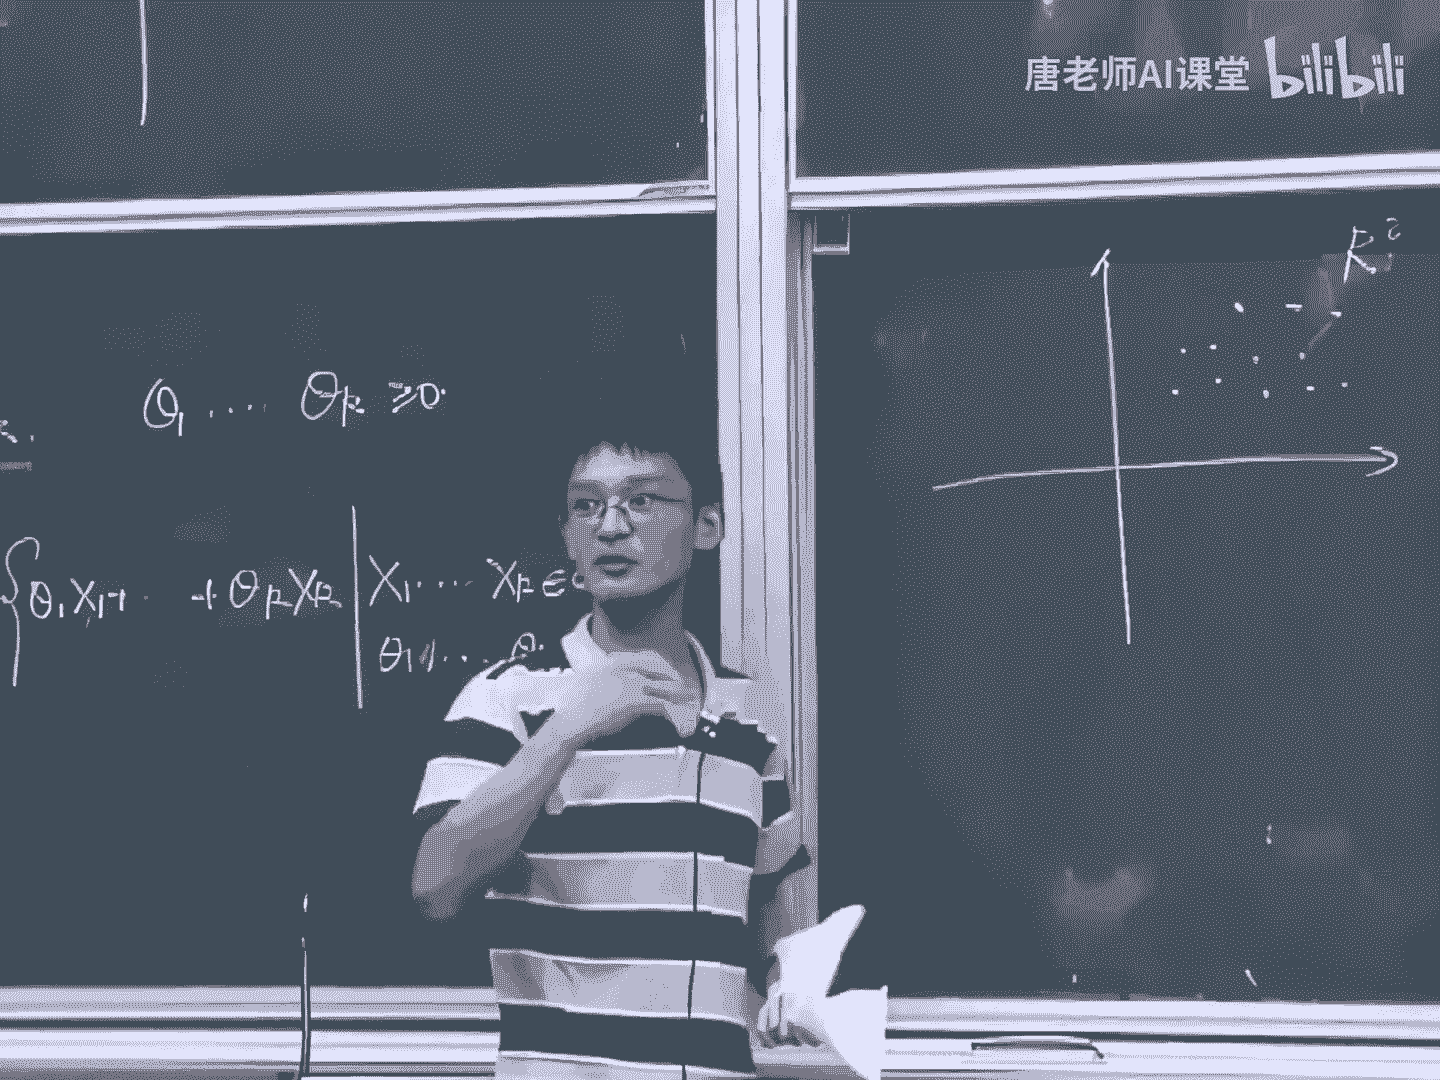 唐老师AI课堂 bilibili
R²
θ₁ .... θₖ ≥0.
{θ₁X₁+ .. +θₖXₖ | X₁.... Xₖ∈
θ₁, ....